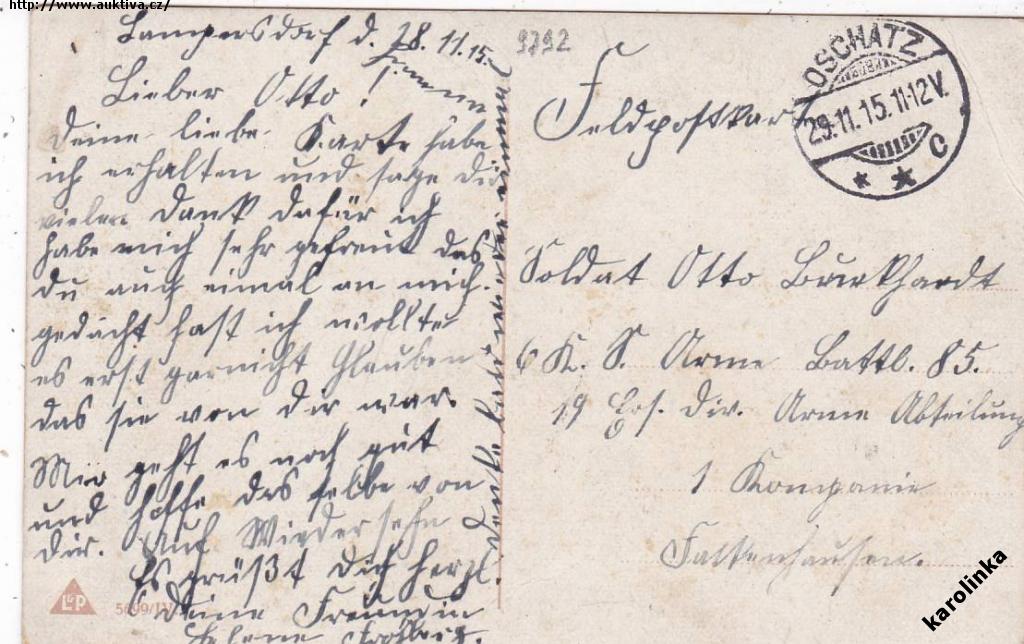 http://www.auktiva.cz/
Lampersdorf d. 28.11.15.
Lieber Otto!
Deine liebe Karte habe
ich erhalten und sage dir
vielen Dank dafür ich
habe mich sehr gefreut das
du auch eimal an mich
gedacht hast ich wollte
es erst garnicht Glauben
das sie von dir war.
Mir geht es noch gut
und hoffe das selbe von
dir. Auf Wiedersehn
Es grüßt dich herzl.
Deine Freundin
Helene
9792
Feldpostkar
OSCHATZ
29.11.15.11-12V.
* * c
Soldat Otto Burkhardt
6 K. S. Arme Battl. 85.
19 Ers. Div. Arme Abteilung
1 Kompanie
Falkenhausen.
L&P
5699/IV
karolinka